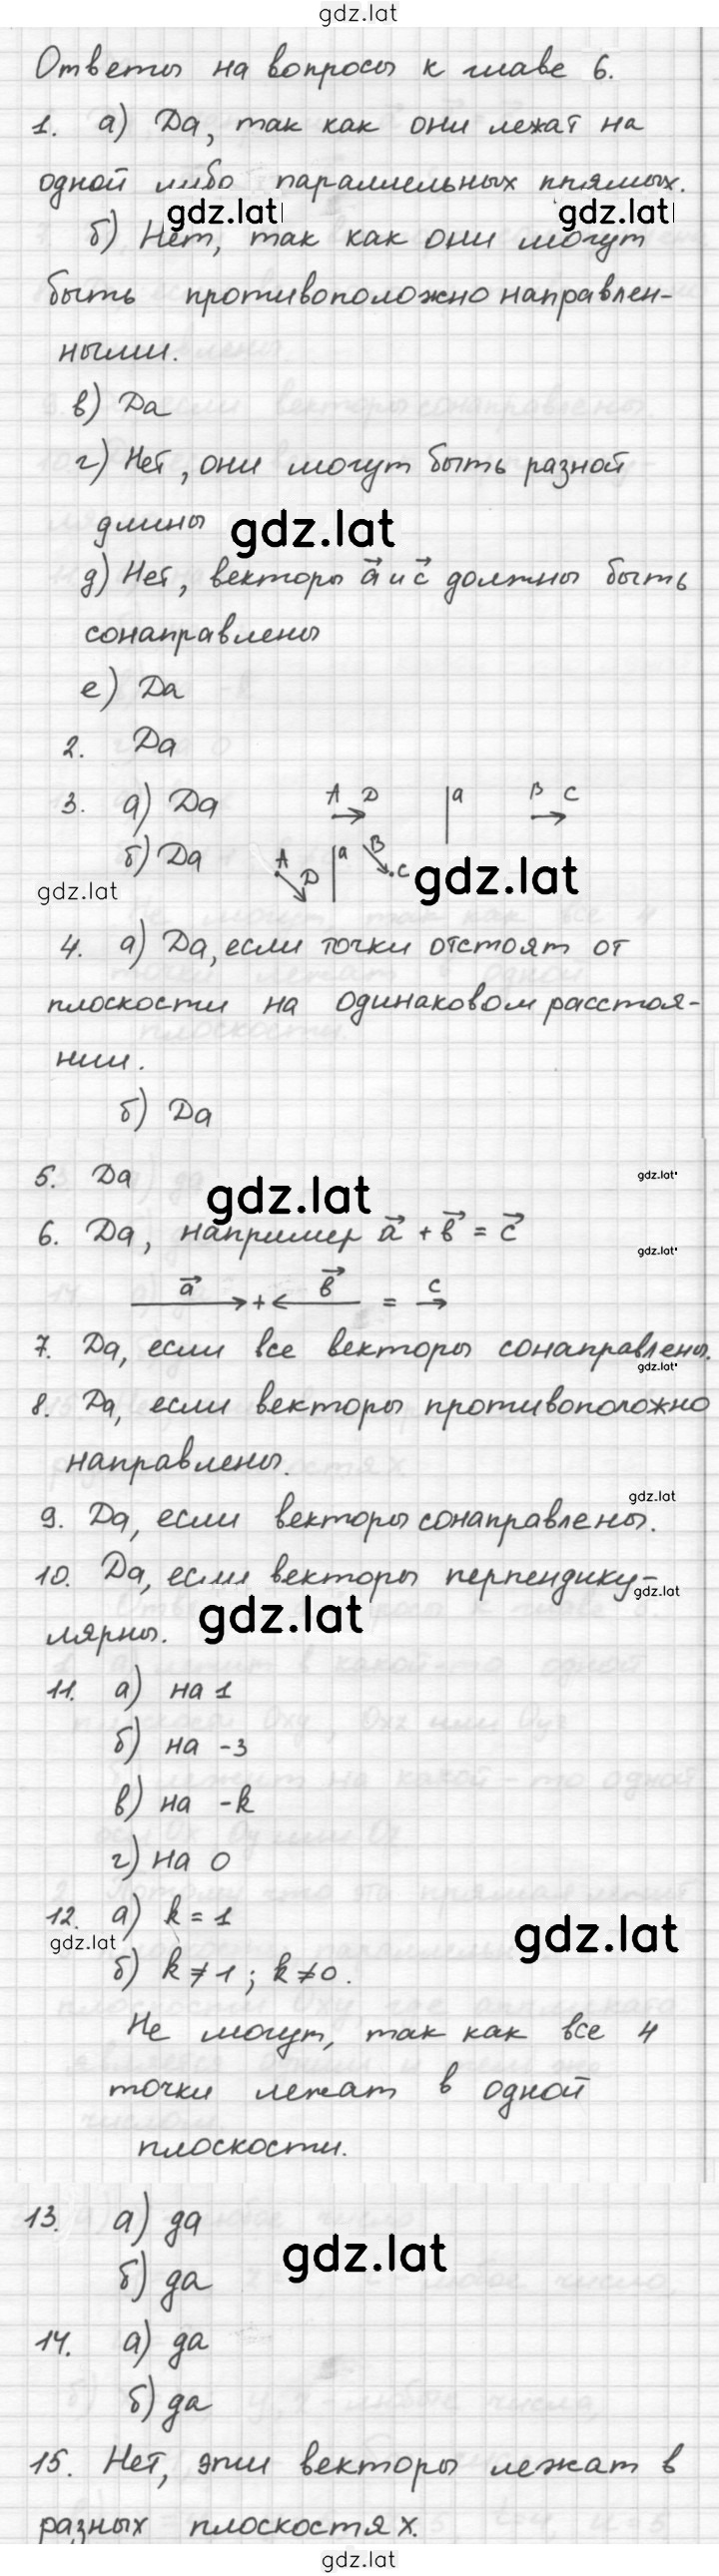 gdz.lat
Ответы на вопросы к главе 6.
1. а) Да, так как они лежат на
одной либо параллельных прямых.
gdz.lat gdz.lat
б) Нет, так как они могут
быть противоположно направлен-
ными.
в) Да
г) Нет, они могут быть разной
длины gdz.lat
д) Нет, векторы a⃗ и c⃗ должны быть
сонаправлены
е) Да
2. Да
3. а) Да A D a B C
б) Да A D a B C gdz.lat
gdz.lat
4. а) Да, если точки отстоят от
плоскости на одинаковом расстоя-
нии.
б) Да
5. Да gdz.lat gdz.lat
6. Да, например a⃗ + b⃗ = c⃗ gdz.lat
a⃗ + b⃗ = c
7. Да, если все векторы сонаправлены.
gdz.lat
8. Да, если векторы противоположно
направлены.
gdz.lat
9. Да, если векторы сонаправлены.
10. Да, если векторы перпендику-
gdz.lat
лярны. gdz.lat
11. а) на 1
б) на -3
в) на -k
г) на 0
12. а) k = 1 gdz.lat
gdz.lat
б) k ≠ 1 ; k ≠ 0.
Не могут, так как все 4
точки лежат в одной
плоскости.
13. а) да
gdz.lat
б) да
14. а) да
б) да
15. Нет, эти векторы лежат в
разных плоскостях.
gdz.lat